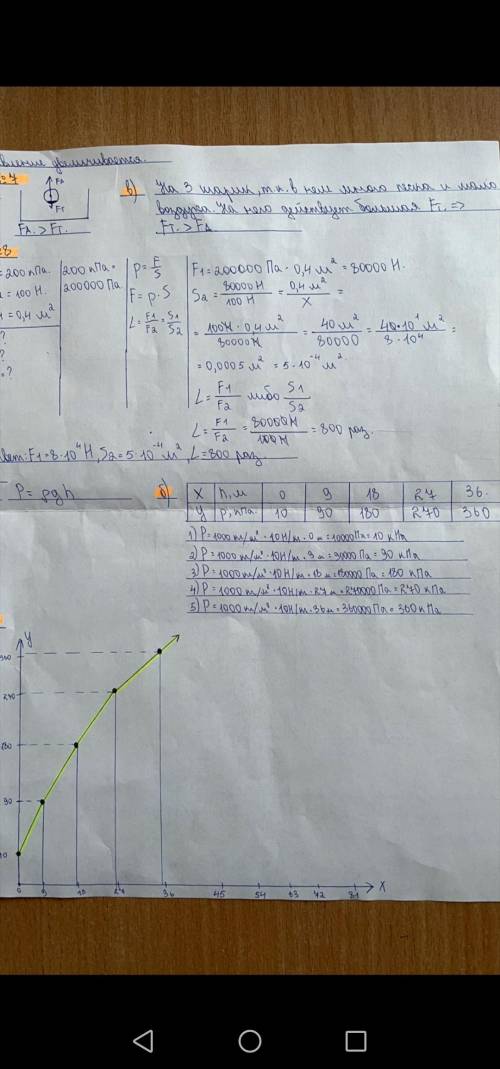 увеличивается.
№7
FА
FТ
FА > FТ
в) На 3 шарик, т.к. в нем много песка и мало
воздуха. На него действует большая FТ. =>
FТ. > FА
= 200 кПа.
= 100 Н.
= 0,4 м²
?
?
= ?
200 кПа =
200000 Па
P = F/S
F = p · S
L = F1/F2 = S1/S2
F1 = 200000 Па · 0,4 м² = 80000 Н.
S2 = 80000 Н/100 Н = 0,4 м²/X =
= 100 Н · 0,4 м²/80000 Н = 40 м²/80000 = 40·10¹ м²/8·10⁴ =
= 0,0005 м² = 5·10⁻⁴ м².
L = F1/F2 либо S1/S2
L = F1/F2 = 80000 Н/100 Н = 800 раз.
F1 = 8·10⁴ Н, S2 = 5·10⁻⁴ м², L = 800 раз.
P = ρgh
б) X h, м 0 9 18 27 36.
У p, кПа. 10 90 180 270 360
1) P = 1000 т/м³ · 10 Н/т · 0 м = 10000 Па = 10 кПа
2) P = 1000 т/м³ · 10 Н/т · 9 м = 90000 Па = 90 кПа
3) P = 1000 т/м³ · 10 Н/т · 18 м = 180000 Па = 180 кПа
4) P = 1000 т/м³ · 10 Н/т · 27 м = 270000 Па = 270 кПа
5) P = 1000 т/м³ · 10 Н/т · 36 м = 360000 Па = 360 кПа
У
360
270
180
90
10
0 9 18 27 36 45 54 63 72 81 X